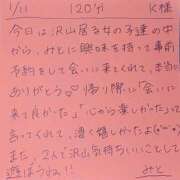 1/11 120分 K様
今日は沢山居る女の子達の中
から、みとに興味を持って事前
予約をして会いに来てくれて、本当に
ありがとう♡帰り際に「会いに
来て良かった」「心から楽しかった」って
言ってくれて、凄く嬉しかったよ(*˘︶˘*)
また、2人で沢山気持ちいいことして
遊ぼうね!! みと